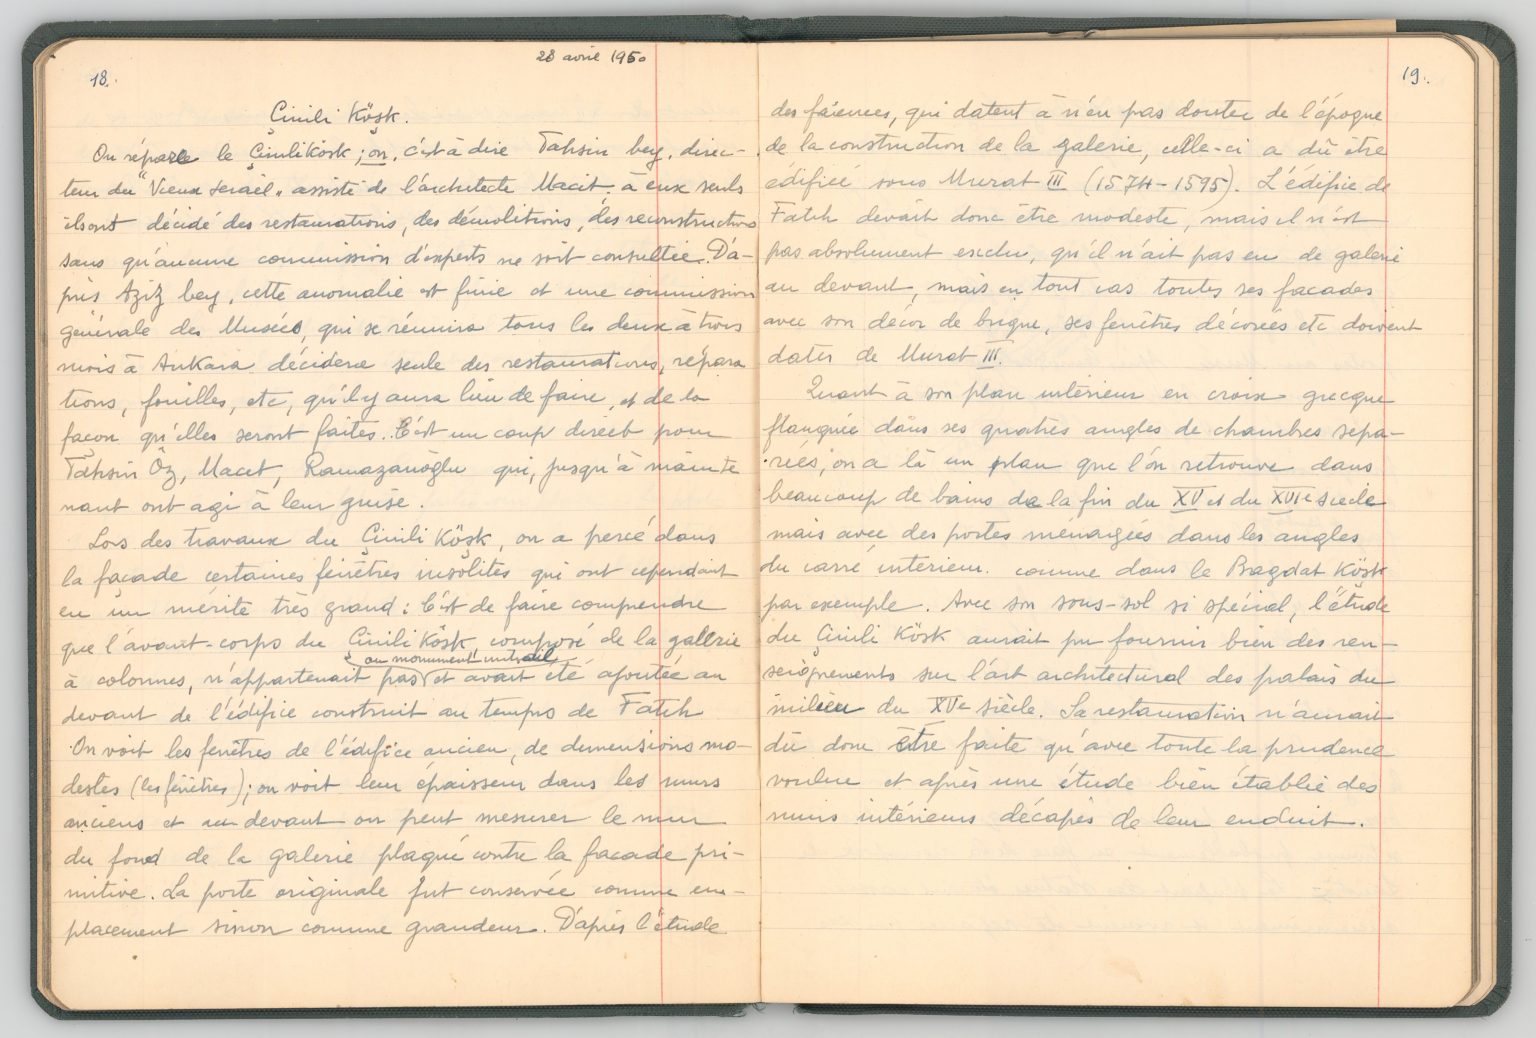 28 avril 1950
18.
Çinili Köşk.
On répare le Çinili Köşk ; on, c'est à dire Tahsin bey, direc-
teur du "Vieux Serail" assisté de l'architecte Macit. à eux seuls
ils ont décidé des restaurations, des démolitions, des reconstructions
sans qu'aucune commission d'experts ne soit consultée. D'a-
près Aziz bey, cette anomalie est finie et une commission
générale des Musées, qui se réunira tous les deux à trois
mois à Ankara décidera seule des restaurations, répara
tions, fouilles, etc, qu'il y aura lieu de faire, et de la
façon qu'elles seront faites. C'est un coup direct pour
Tahsin Öz, Macit, Ramazanoğlu qui, jusqu'à mainte
nant ont agi à leur guise.
Lors des travaux du Çinili Köşk, on a percé dans
la façade certaines fenêtres insolites qui ont cependant
eu un mérite très grand : C'est de faire comprendre
que l'avant-corps du Çinili Köşk composé de la gallerie
à colonnes, n'appartenait pas au monument initial et avait été ajoutée au
devant de l'édifice construit au temps de Fatih
On voit les fenêtres de l'édifice ancien, de dimensions mo-
destes (les fenêtres) ; on voit leur épaisseur dans les murs
anciens et au devant on peut mesurer le mur
du fond de la galerie plaqué contre la façade pri-
mitive. La porte originale fut conservée comme em-
placement sinon comme grandeur. D'après l'étude
19.
des faïences, qui datent à n'en pas douter de l'époque
de la construction de la galerie, celle-ci a dû être
édifiée sous Murat III (1574-1595). L'édifice de
Fatih devait donc être modeste, mais il n'est
pas absolument exclu, qu'il n'ait pas eu de galerie
au devant, mais en tout cas toutes ses facades
avec son décor de brique, ses fenêtres décorées etc doivent
dater de Murat III.
Quant à son plan intérieur en croix grecque
flanquée dans ses quatres angles de chambres sépa-
rées, on a là un plan que l'on retrouve dans
beaucoup de bains de la fin du XV et du XVIe siècle
mais avec des portes ménagées dans les angles
du carré intérieur. comme dans le Bagdat Köşk
par exemple. Avec son sous-sol si spécial, l'étude
du Çinili Kösk aurait pu fournir bien des ren-
seignements sur l'art architectural des palais du
milieu du XVe siècle. Sa restauration n'aurait
dû donc être faite qu'avec toute la prudence
voulue et après une étude bien établie des
murs intérieurs décapés de leur enduit.